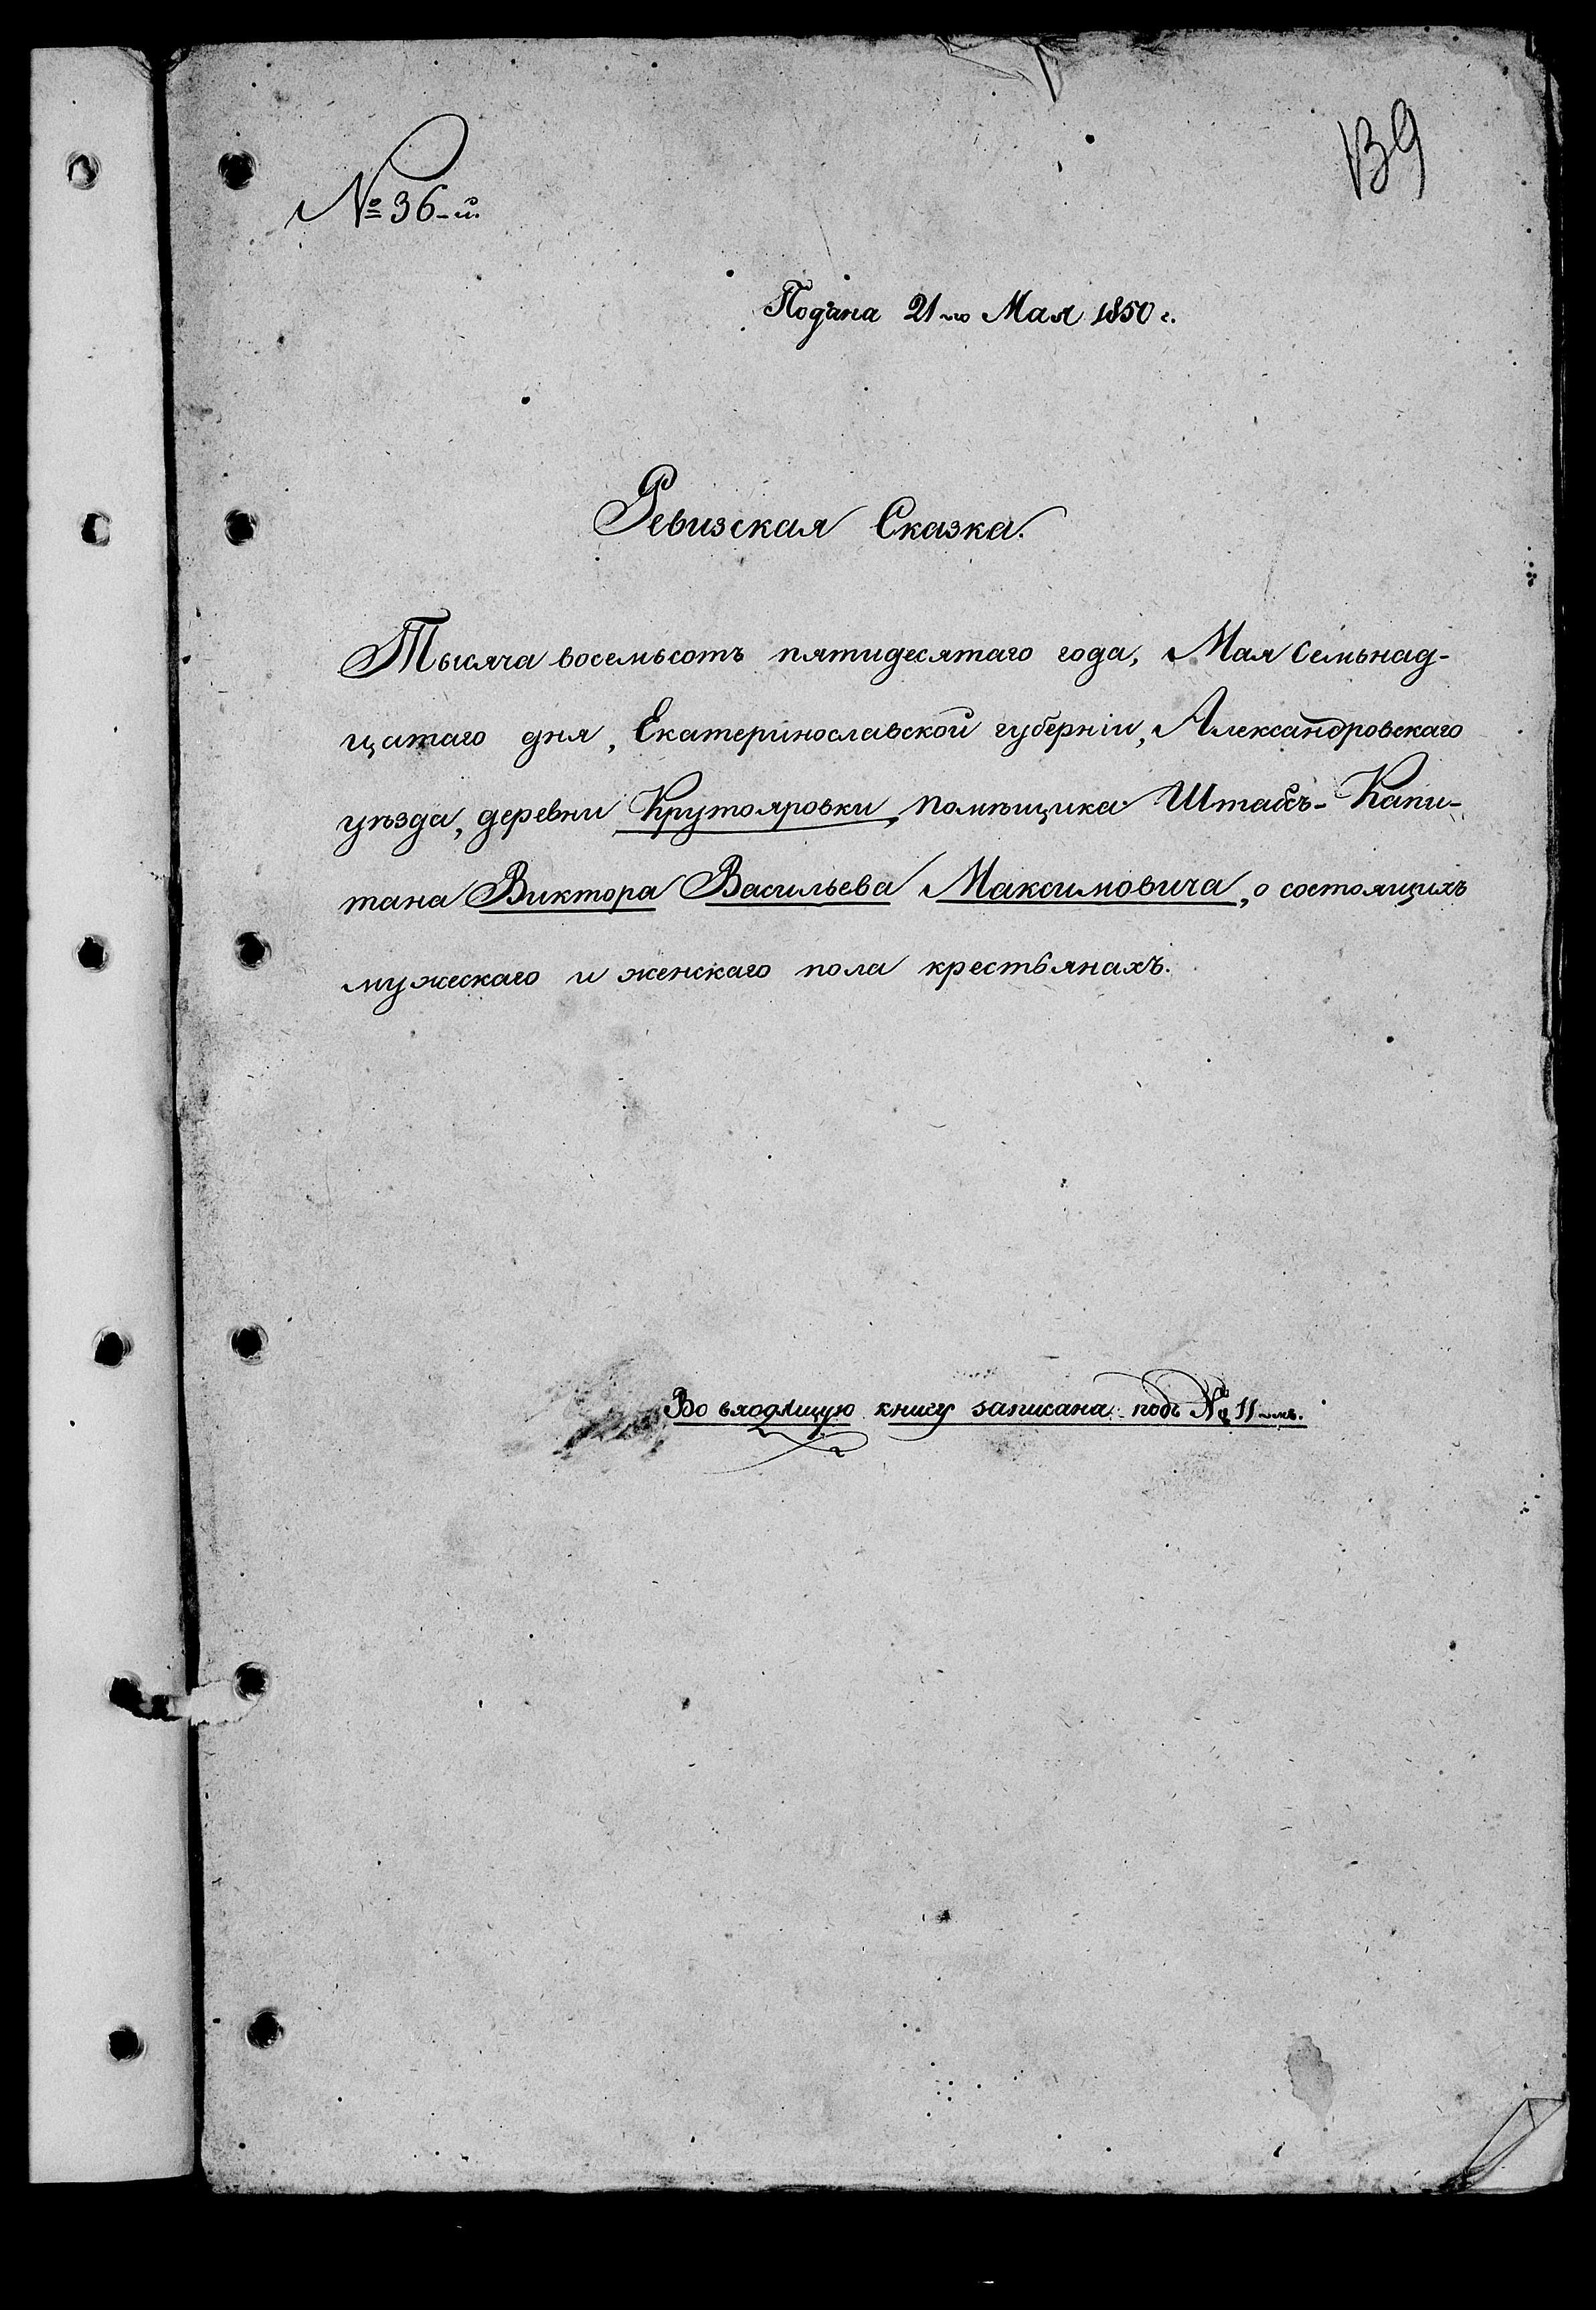 № 36-й.
139
Подана 21го Мая 1850 г.
Ревизская Сказка.
Тысяча восемьсотъ пятидесятаго года, Мая семьнад-
цатаго дня, Екатеринославской губерніи, Александровскаго
уѣзда, деревни Крутояровки, помѣщика Штабсъ-Капи-
тана Виктора Васильева Максимовича, о состоящихъ
мужескаго и женскаго пола крестьянахъ.
Во входящую книгу записана подъ № 11мъ.